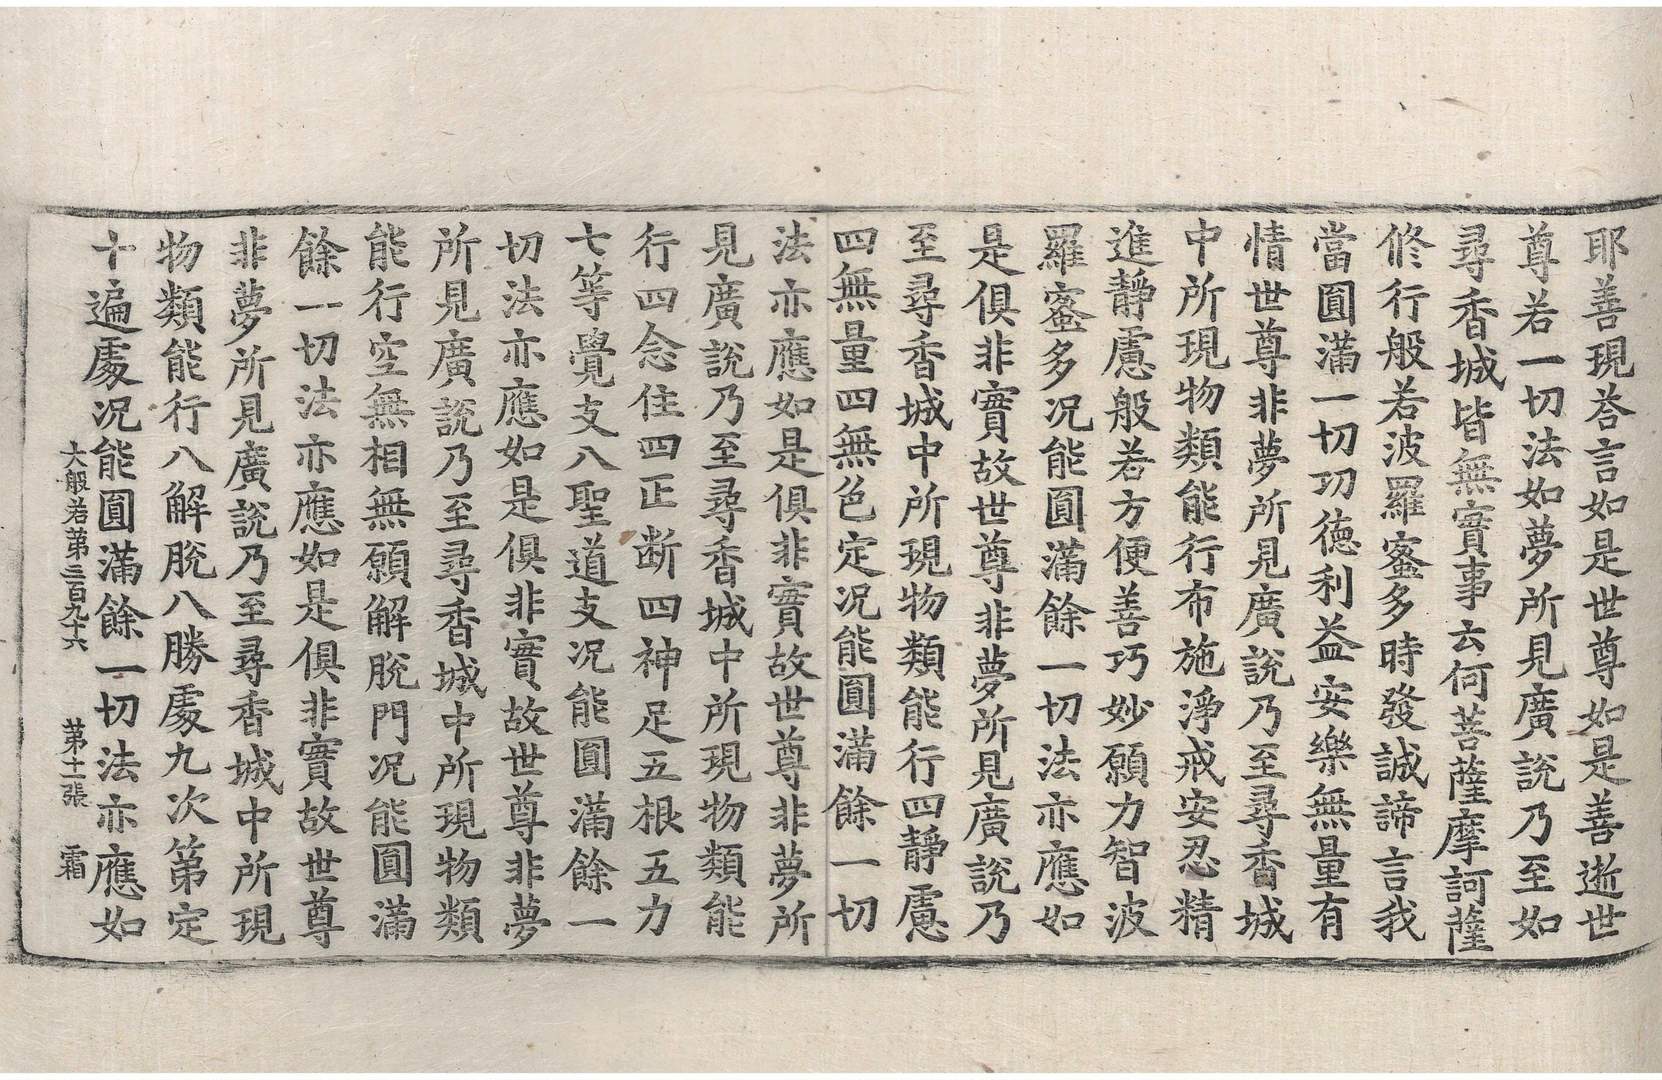 耶善現荅言如是世尊如是善逝世
尊若一切法如夢所見廣說乃至如
尋香城皆無實事云何菩薩摩訶薩
修行般若波羅蜜多時發誠諦言我
當圓滿一切功德利益安樂無量有
情世尊非夢所見廣說乃至尋香城
中所現物類能行布施淨戒安忍精
進靜慮般若方便善巧妙願力智波
羅蜜多况能圓滿餘一切法亦應如
是俱非實故世尊非夢所見廣說乃
至尋香城中所現物類能行四靜慮
四無量四無色定况能圓滿餘一切
法亦應如是俱非實故世尊非夢所
見廣說乃至尋香城中所現物類能
行四念住四正断四神足五根五力
七等覺支八聖道支况能圓滿餘一
切法亦應如是俱非實故世尊非夢
所見廣說乃至尋香城中所現物類
能行空無相無願解脫門况能圓滿
餘一切法亦應如是俱非實故世尊
非夢所見廣說乃至尋香城中所現
物類能行八解脫八勝處九次第定
十遍處况能圓滿餘一切法亦應如
大般若第三百九十六 第十一張 霜